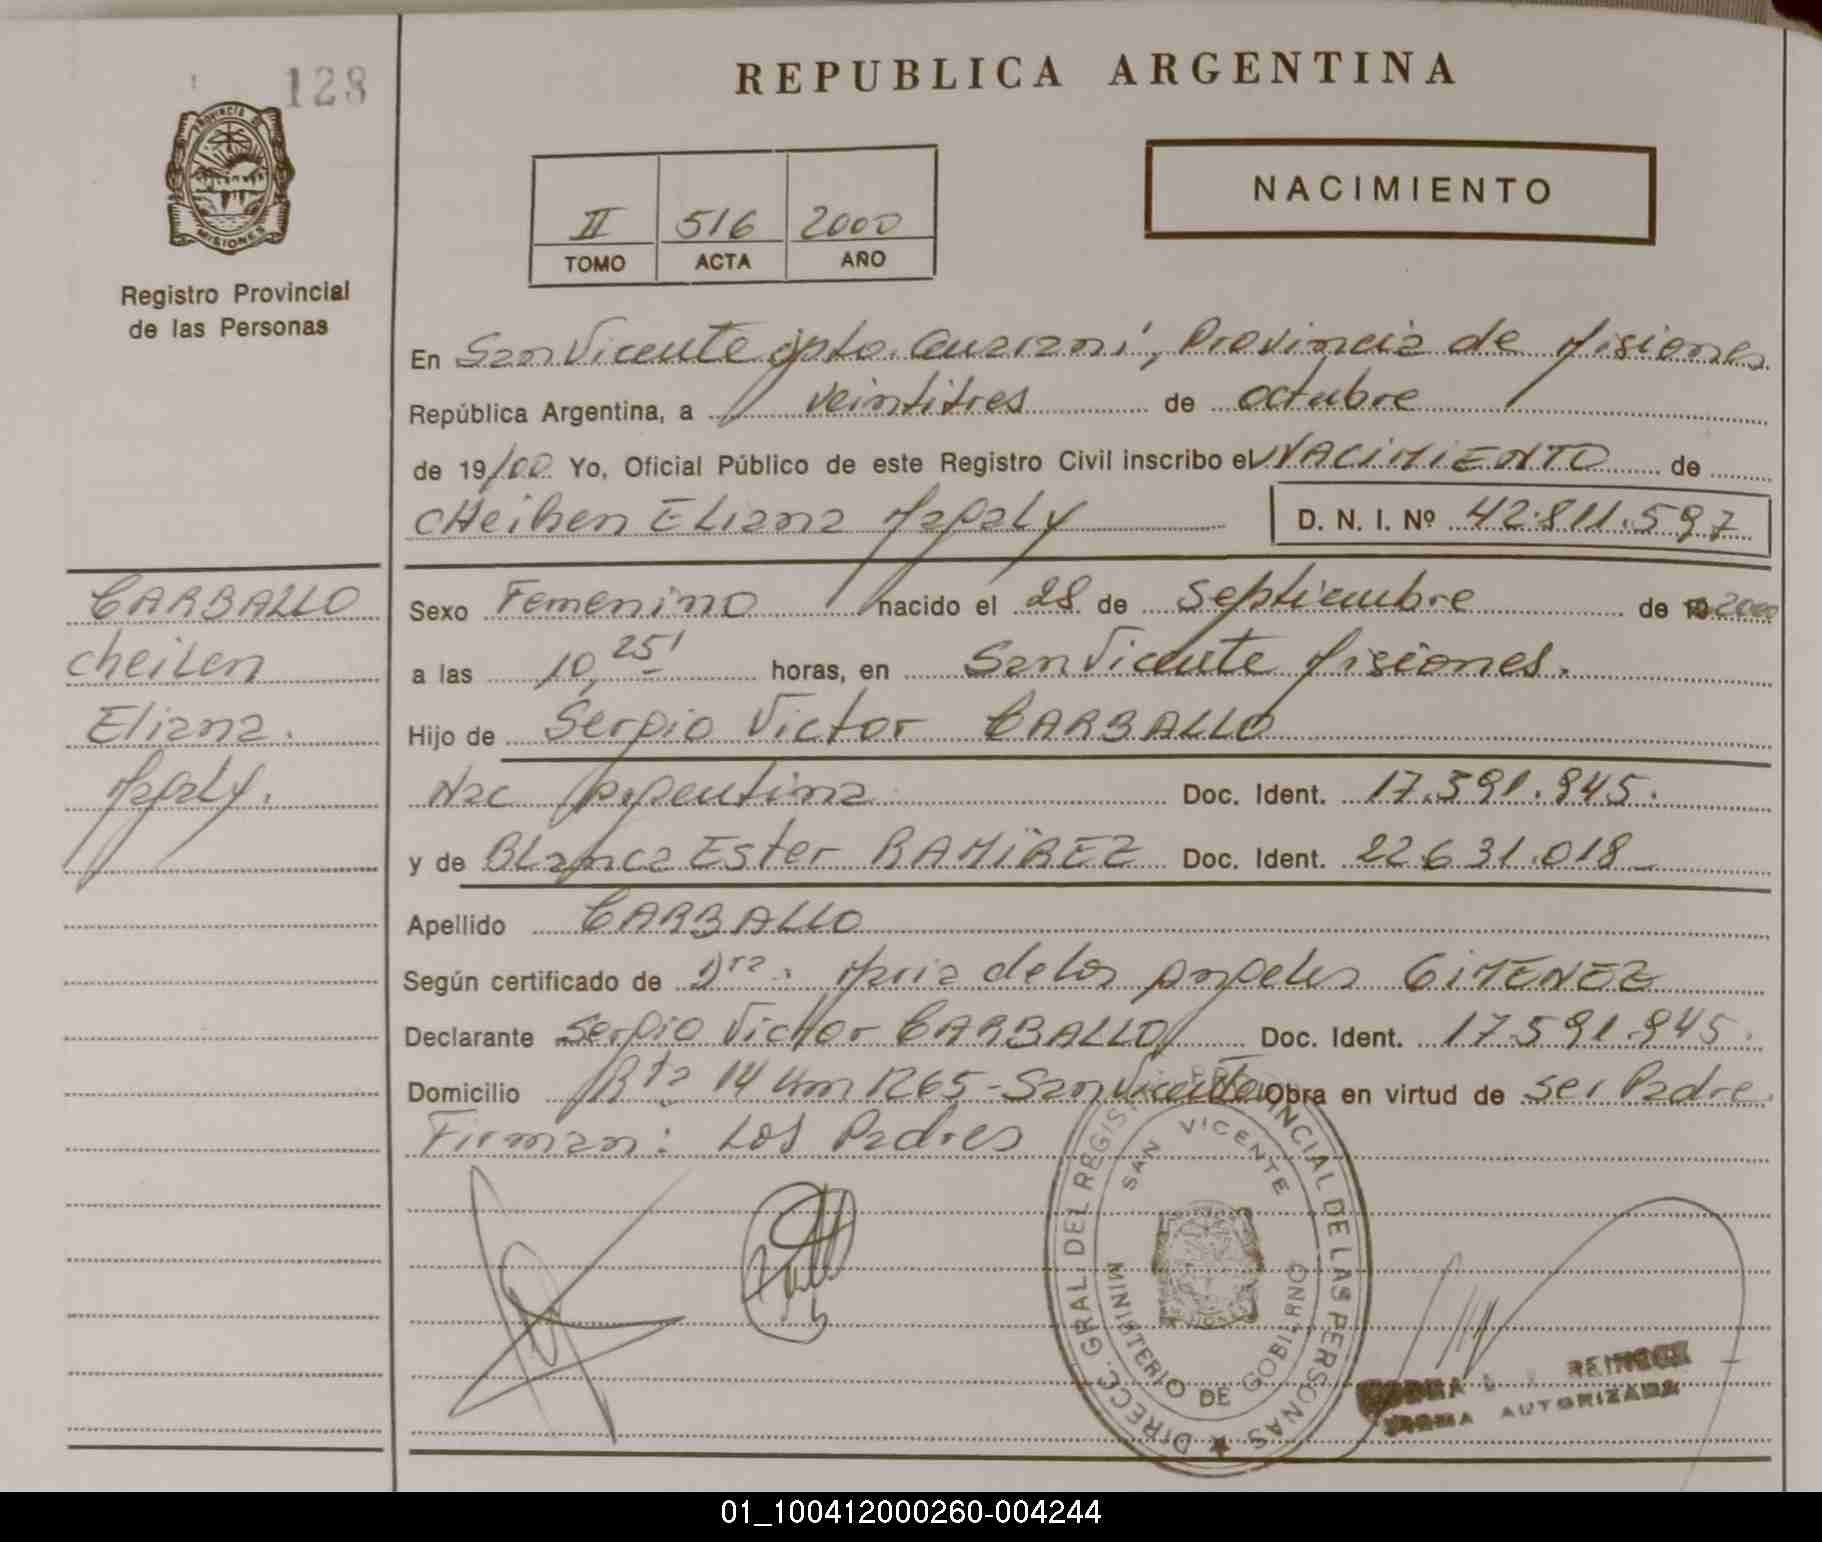 128
PROVINCIA DE
MISIONES
Registro Provincial
de las Personas
REPUBLICA ARGENTINA
II 516 2000
TOMO ACTA AÑO
NACIMIENTO
En San Vicente Dpto. Guaraní, Provincia de Misiones
República Argentina, a veintitres de octubre
de 19/00 Yo, Oficial Público de este Registro Civil inscribo el NACIMIENTO de
CHeilen ELiana MagaLy D. N. I. Nº 42.811.597
Sexo Femenino nacido el 28 de Septiembre de 2000
a las 10,25' horas, en San Vicente Misiones.
Hijo de Sergio Victor CARBALLO
Nac Argentina Doc. Ident. 17.591.945.
y de BLanca Ester RAMIREZ Doc. Ident. 22.631.018
Apellido CARBALLO
Según certificado de Dra. Maria de los Angeles GIMENEZ
Declarante Sergio Victor CARBALLO Doc. Ident. 17.591.945.
Domicilio Rta 14 Km 1265 - San Vicente Obra en virtud de ser Padre.
Firman: Los Padres
CARBALLO
cheilen
Eliana.
MagaLy.
DIRECC. GRAL. DEL REGISTRO PROVINCIAL DE LAS PERSONAS
SAN VICENTE
MINISTERIO DE GOBIERNO
FIRMA AUTORIZADA
01_100412000260-004244